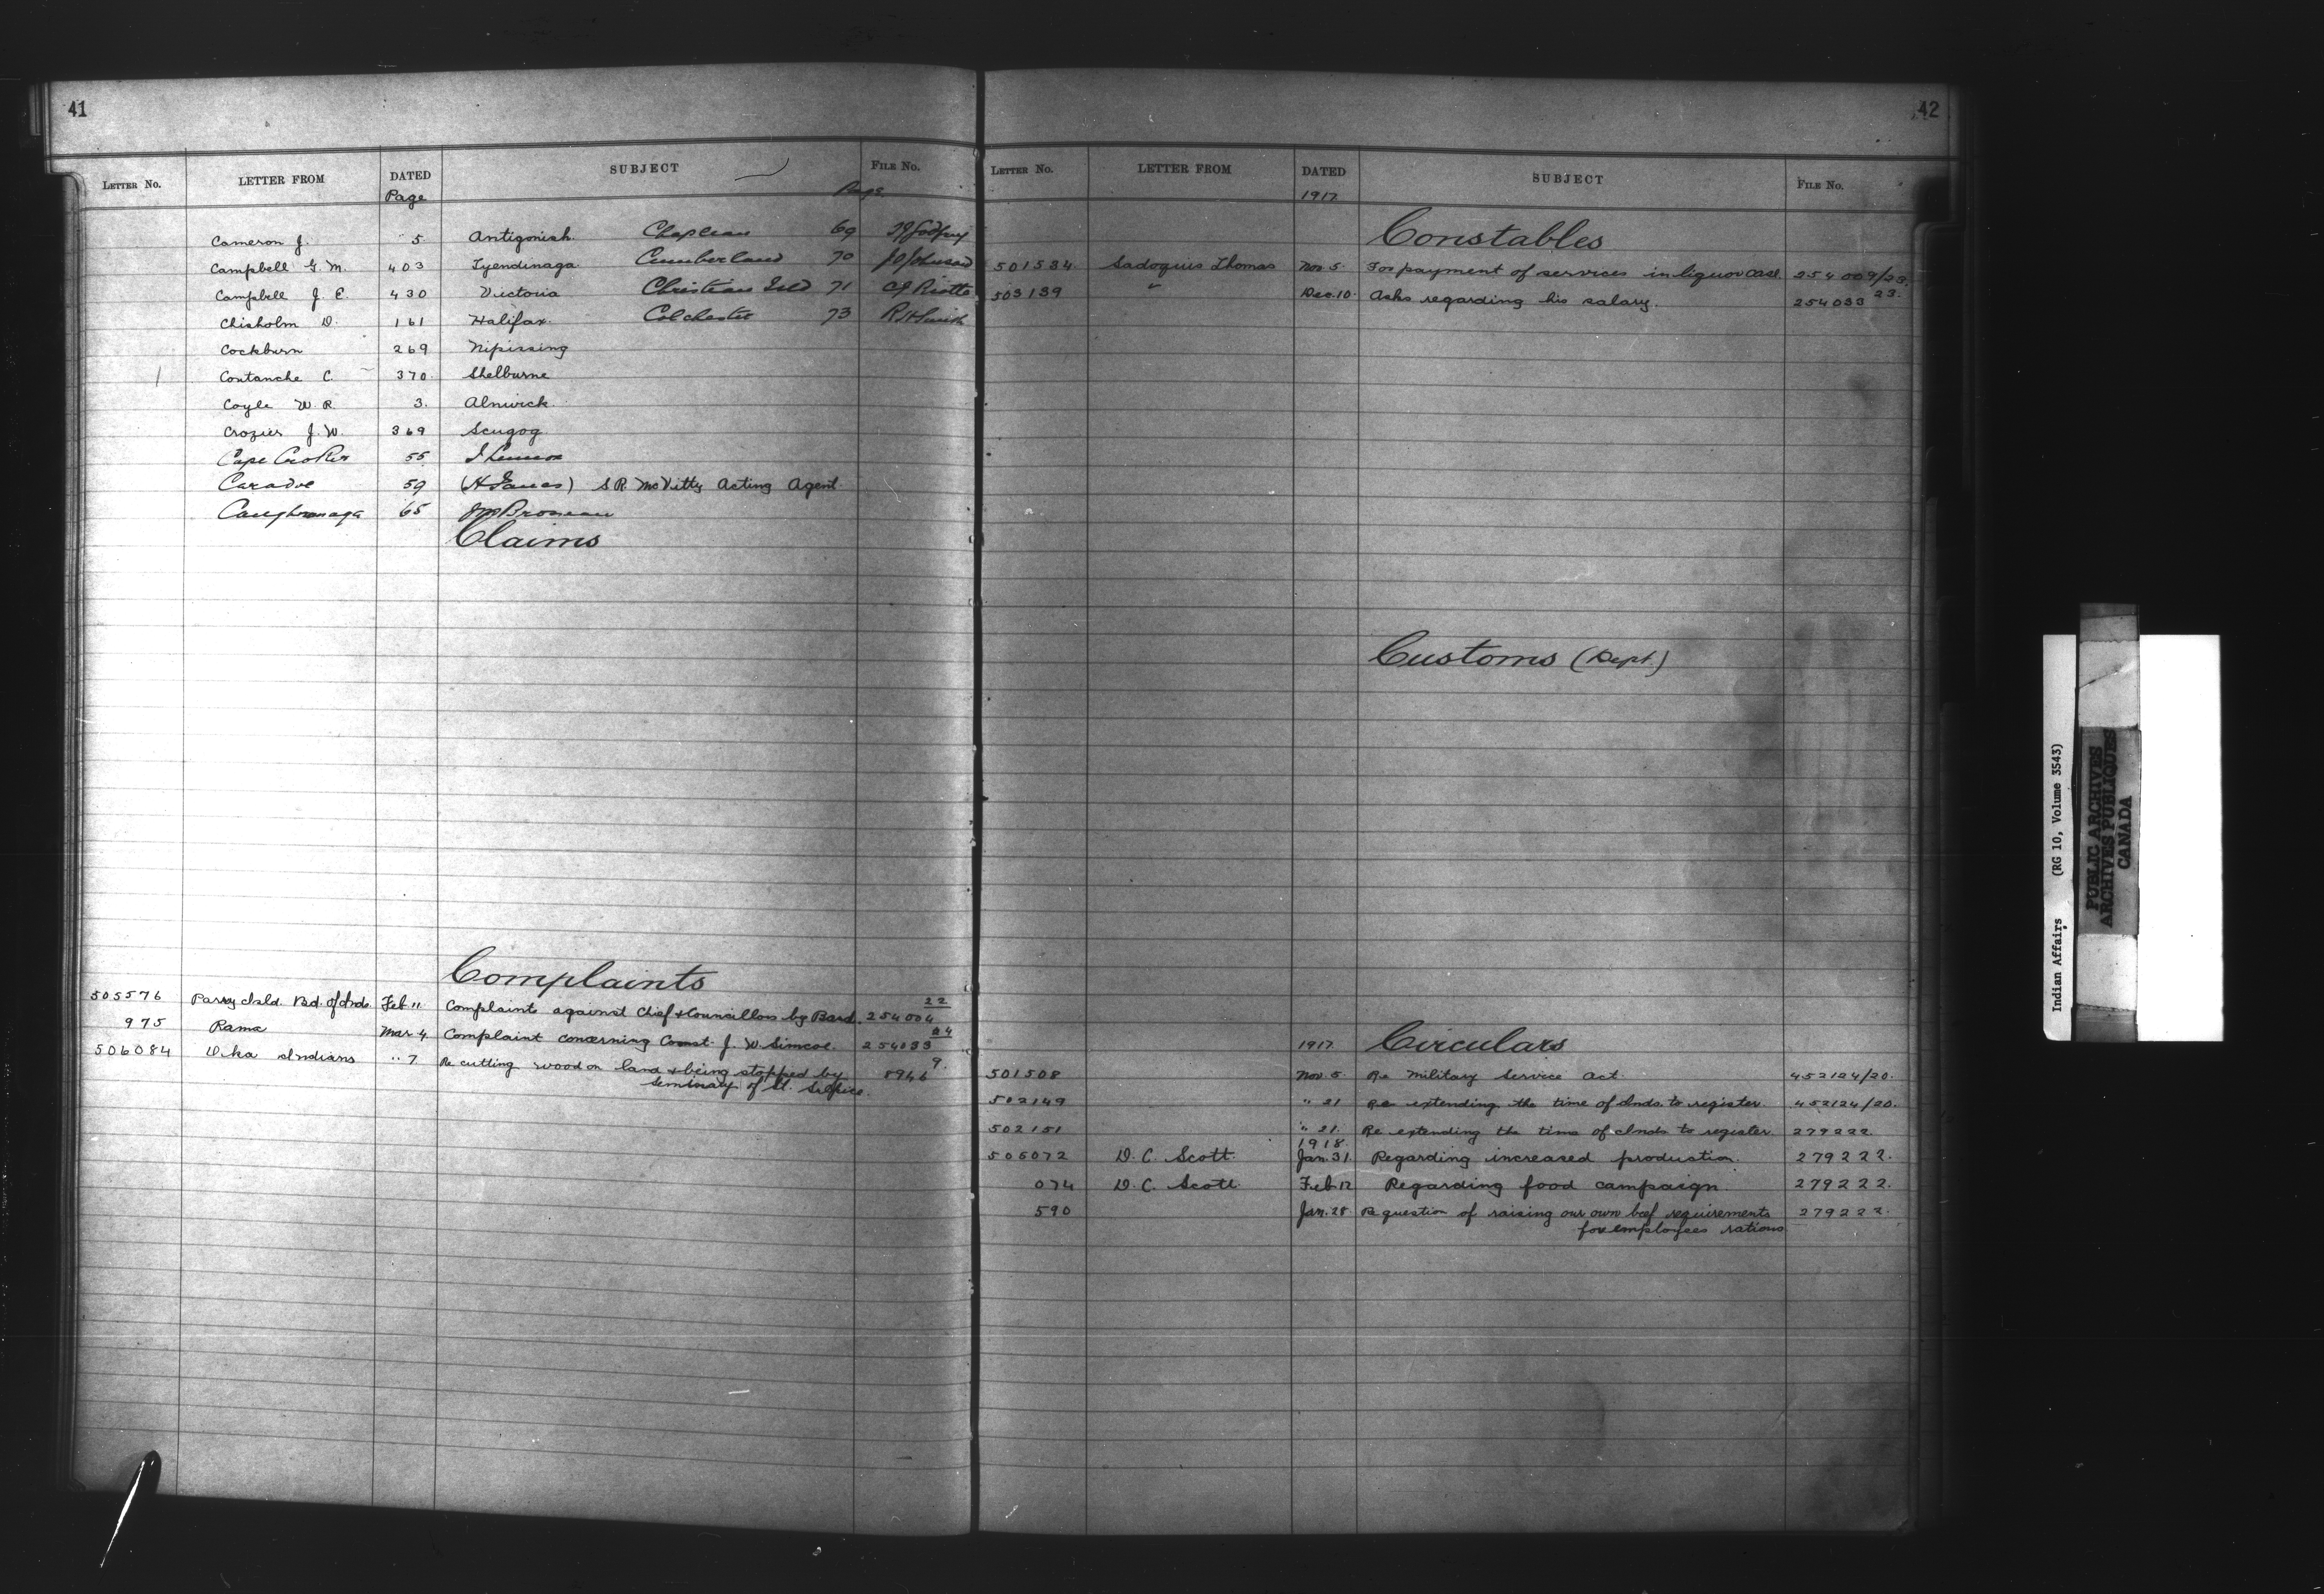 41
LETTER NO. LETTER FROM DATED SUBJECT FILE No.
Page Page
Cameron J. 5 Antigonish Chapleau 69
Campbell G. M. 403 Tyendinaga Cumberland 70
Campbell J. E. 430 Victoria Christian Isld 71
Chisholm D. 161 Halifax Colchester 73 R H Smith
Cockburn 269 Nipissing
Coutanche C. 370 Shelburne
Coyle W. R. 3. Alnwick
Crozier J. W. 369 Scugog
Cape Croker 55
Caradoc 59 S. R. McVitty Acting Agent
Caughnawaga 65
Claims
Complaints
505576 Parry Isld. Bd. of Inds. Feb. 11. Complaints against Chief & Councillors by Band. 254004 22
975 Rama Mar. 4. Complaint concerning Const. J. W. Simcoe. 254033 24
506084 Oka Indians " 7 Re cutting wood on land & being stopped by 8946 9.
Seminary of St. Sulpice.
42
LETTER NO. LETTER FROM DATED SUBJECT FILE No.
1917
Constables
501534 Sadoquis Thomas Nov. 5. For payment of services in liquor case 254009/23.
503139 " Dec. 10. Asks regarding his salary. 254033 23.
Customs (Dept.)
1917 Circulars
501508 Nov. 5. Re Military Service Act. 452124/20.
502149 " 21 Re extending the time of Inds. to register. 452124/20.
502151 " 21. Re extending the time of Inds to register. 279222.
1918.
505072 D. C. Scott. Jan. 31. Regarding increased production. 279222.
074 D. C. Scott. Feb. 12 Regarding food campaign. 279222.
590 Jan. 28 Re question of raising our own beef requirements 279222.
for employees rations
Indian Affairs (RG 10, Volume 3543)
PUBLIC ARCHIVES
ARCHIVES PUBLIQUES
CANADA